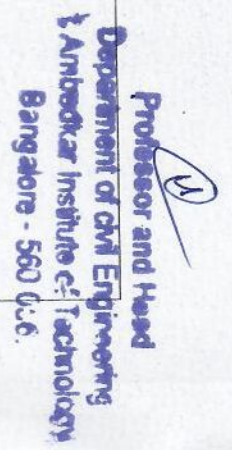 Professor and Head
Department of Civil Engineering
Ambedkar Institute of Technology
Bangalore - 560